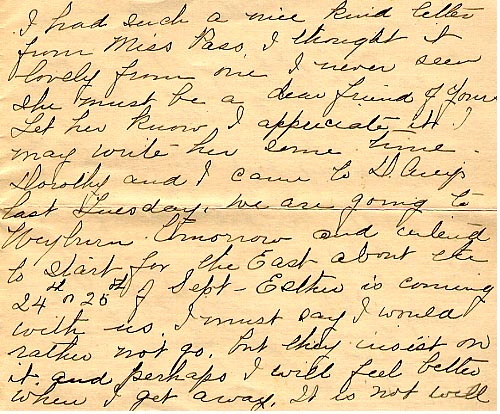 I had such a nice kind letter
from Miss Pass, I thought it
lovely from one I never seen
she must be a dear friend of yours
Let her know I appreciate it I
may write her some time.
Dorothy and I came to
last Tuesday. we are going to
Weyburn tomorrow and intend
to start for the East about the
24th or 25th of Sept - Esther is coming
with us. I must say I would
rather not go, but they insist on
it. and perhaps I will feel better
when I get away. It is not well